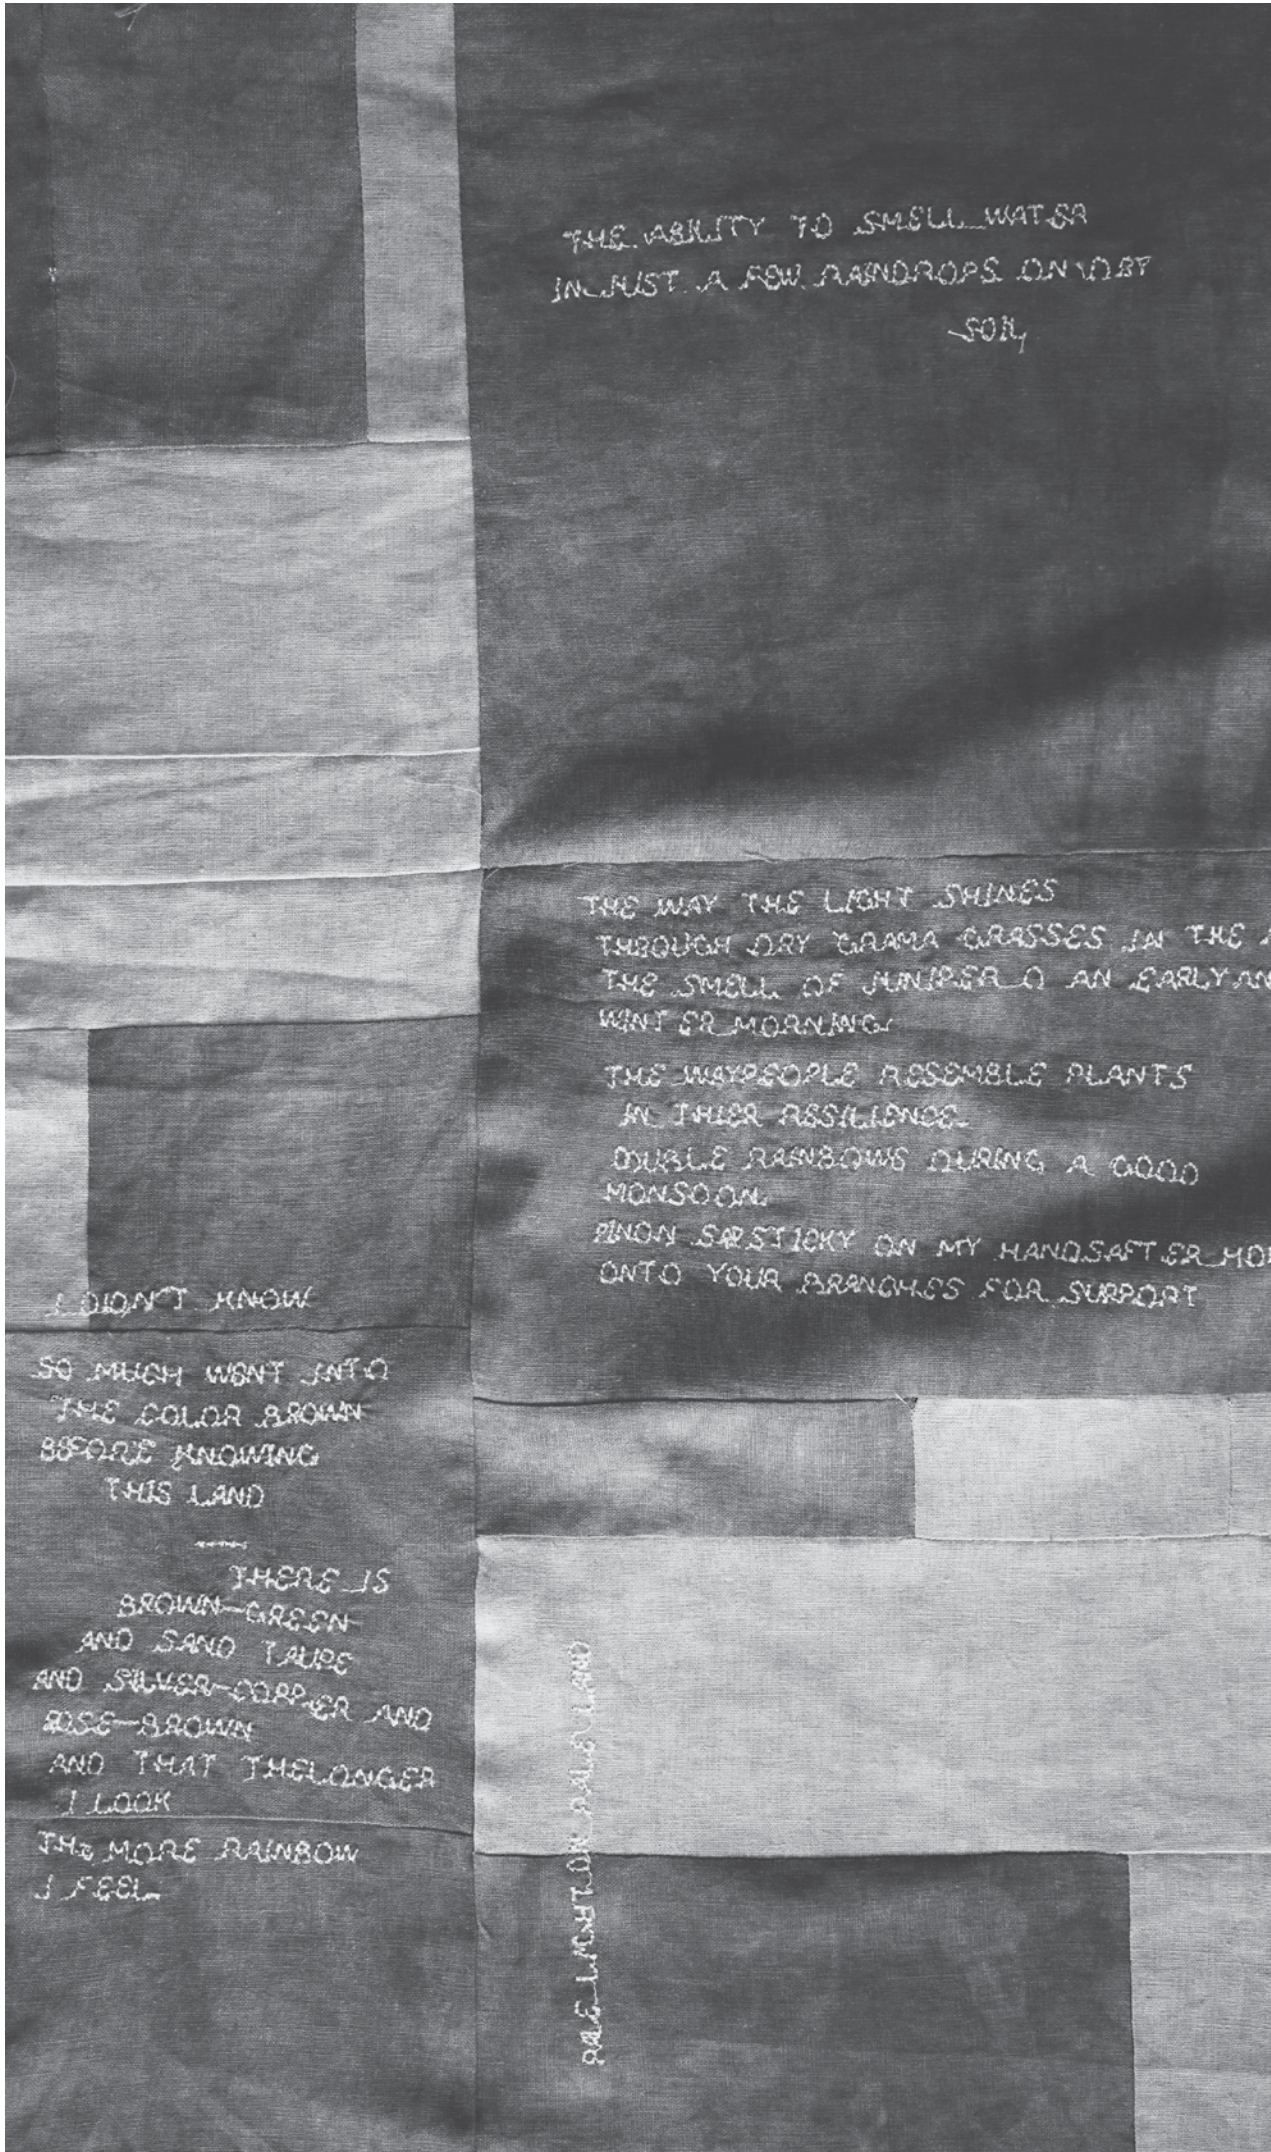 THE ABILITY TO SMELL WATER
IN JUST A FEW RAINDROPS ON DRY
SOIL
THE WAY THE LIGHT SHINES
THROUGH DRY GRAMA GRASSES IN THE
THE SMELL OF JUNIPER O AN EARLY AN
WINTER MORNING.
THE WAYPEOPLE RESEMBLE PLANTS
IN THIER RESILIENCE.
DOUBLE RAINBOWS DURING A GOOD
MONSOON.
PINON SAP STICKY ON MY HANDSAFTER
ONTO YOUR BRANCHES FOR SUPPORT
I DIDN'T KNOW
SO MUCH WENT INTO
THE COLOR BROWN
BEFORE KNOWING
THIS LAND
—
THERE IS
BROWN-GREEN
AND SAND TAUPE
AND SILVER-COPPER AND
ROSE-BROWN
AND THAT THELONGER
I LOOK
THE MORE RAINBOW
I FEEL
PALE LAND